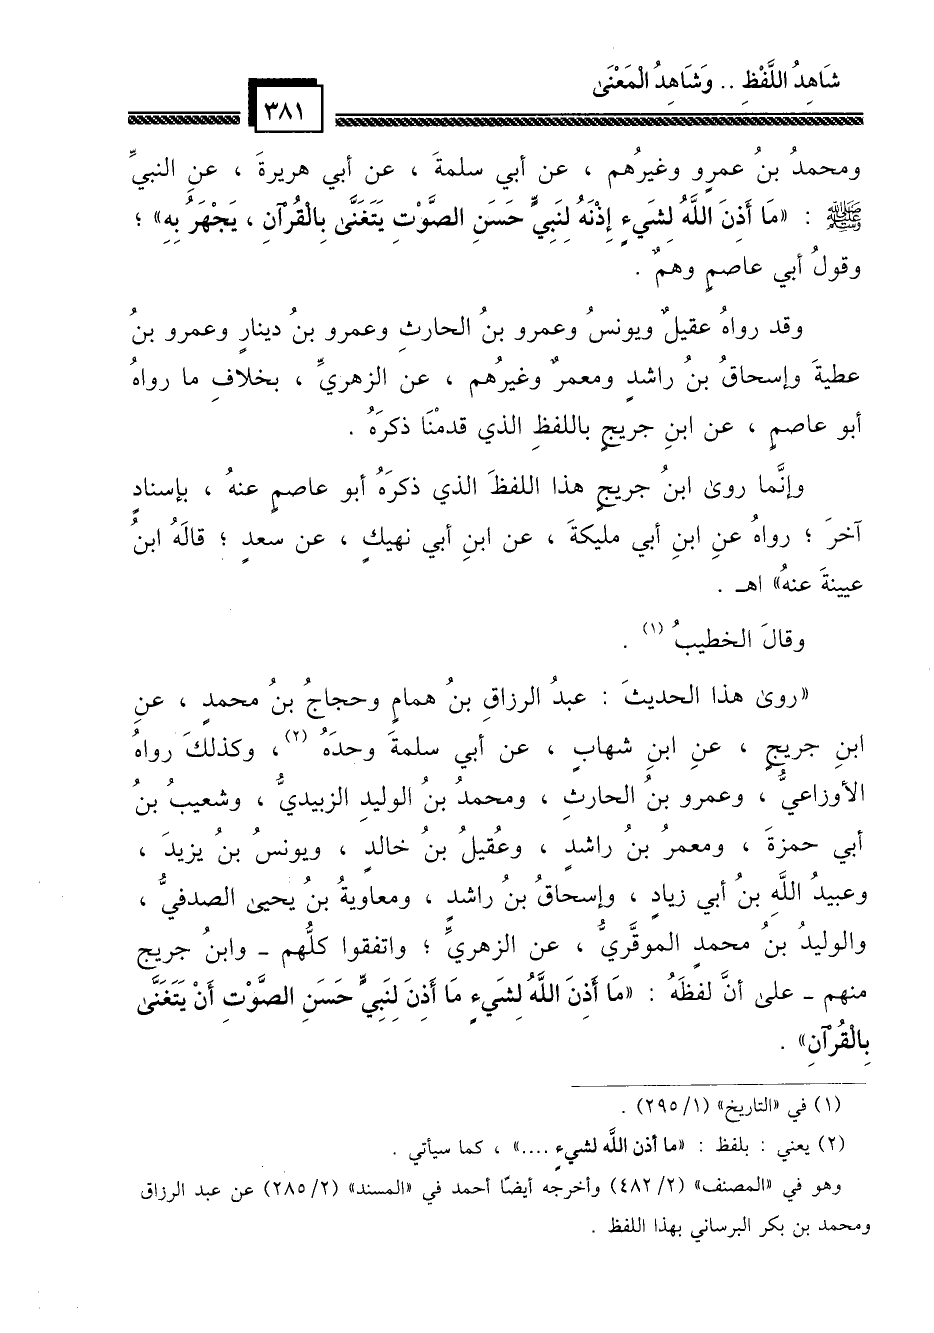 شَاهِدُ اللَّفْظِ .. وَشَاهِدُ الْمَعْنَىٰ
٣٨١
ومحمدُ بنُ عمرٍو وغيرُهم ، عن أبي سلمةَ ، عن أبي هريرةَ ، عنِ النبيِّ
ﷺ : «مَا أَذِنَ اللَّهُ لِشَيءٍ إِذْنَهُ لِنَبِيٍّ حَسَنِ الصَّوْتِ يَتَغَنَّىٰ بِالْقُرْآنِ ، يَجْهَرُ بِهِ» ؛
وقولُ أبي عاصمٍ وهمٌ .
وقد رواهُ عقيلٌ ويونسُ وعمرو بنُ الحارثِ وعمرو بنُ دينارٍ وعمرو بنُ
عطيةَ وإسحاقُ بنُ راشدٍ ومعمرٌ وغيرُهم ، عن الزهريِّ ، بخلافِ ما رواهُ
أبو عاصمٍ ، عن ابنِ جريجٍ باللفظِ الذي قدمْنَا ذكرَهُ .
وإنَّما روىٰ ابنُ جريجٍ هذا اللفظَ الذي ذكرَهُ أبو عاصمٍ عنهُ ، بإسنادٍ
آخرَ ؛ رواهُ عنِ ابنِ أبي مليكةَ ، عن ابنِ أبي نهيكٍ ، عن سعدٍ ؛ قالَهُ ابنُ
عيينةَ عنهُ» اهـ .
وقالَ الخطيبُ (١) .
«روىٰ هذا الحديثَ : عبدُ الرزاقِ بنُ همامٍ وحجاجُ بنُ محمدٍ ، عنِ
ابنِ جريجٍ ، عنِ ابنِ شهابٍ ، عن أبي سلمةَ وحدَهُ (٢)، وكذلكَ رواهُ
الأوزاعيُّ ، وعمرو بنُ الحارثِ ، ومحمدُ بنُ الوليدِ الزبيديُّ ، وشعيبُ بنُ
أبي حمزةَ ، ومعمرُ بنُ راشدٍ ، وعُقيلُ بنُ خالدٍ ، ويونسُ بنُ يزيدَ ،
وعبيدُ اللَّهِ بنُ أبي زيادٍ ، وإسحاقُ بنُ راشدٍ ، ومعاويةُ بنُ يحيىٰ الصدفيُّ ،
والوليدُ بنُ محمدٍ الموقَّريُّ ، عن الزهريِّ ؛ واتفقوا كلُّهم ـ وابنُ جريجٍ
منهم ـ علىٰ أنَّ لفظَهُ : «مَا أَذِنَ اللَّهُ لِشَيءٍ مَا أَذِنَ لِنَبِيٍّ حَسَنِ الصَّوْتِ أَنْ يَتَغَنَّىٰ
بِالْقُرْآنِ» .
(١) في «التاريخ» (١/ ٢٩٥) .
(٢) يعني : بلفظ : «ما أذن اللَّه لشيءٍ ....» ، كما سيأتي .
وهو في «المصنف» (٢/ ٤٨٢) وأخرجه أيضًا أحمد في «المسند» (٢/ ٢٨٥) عن عبد الرزاق
ومحمد بن بكر البرساني بهذا اللفظ .